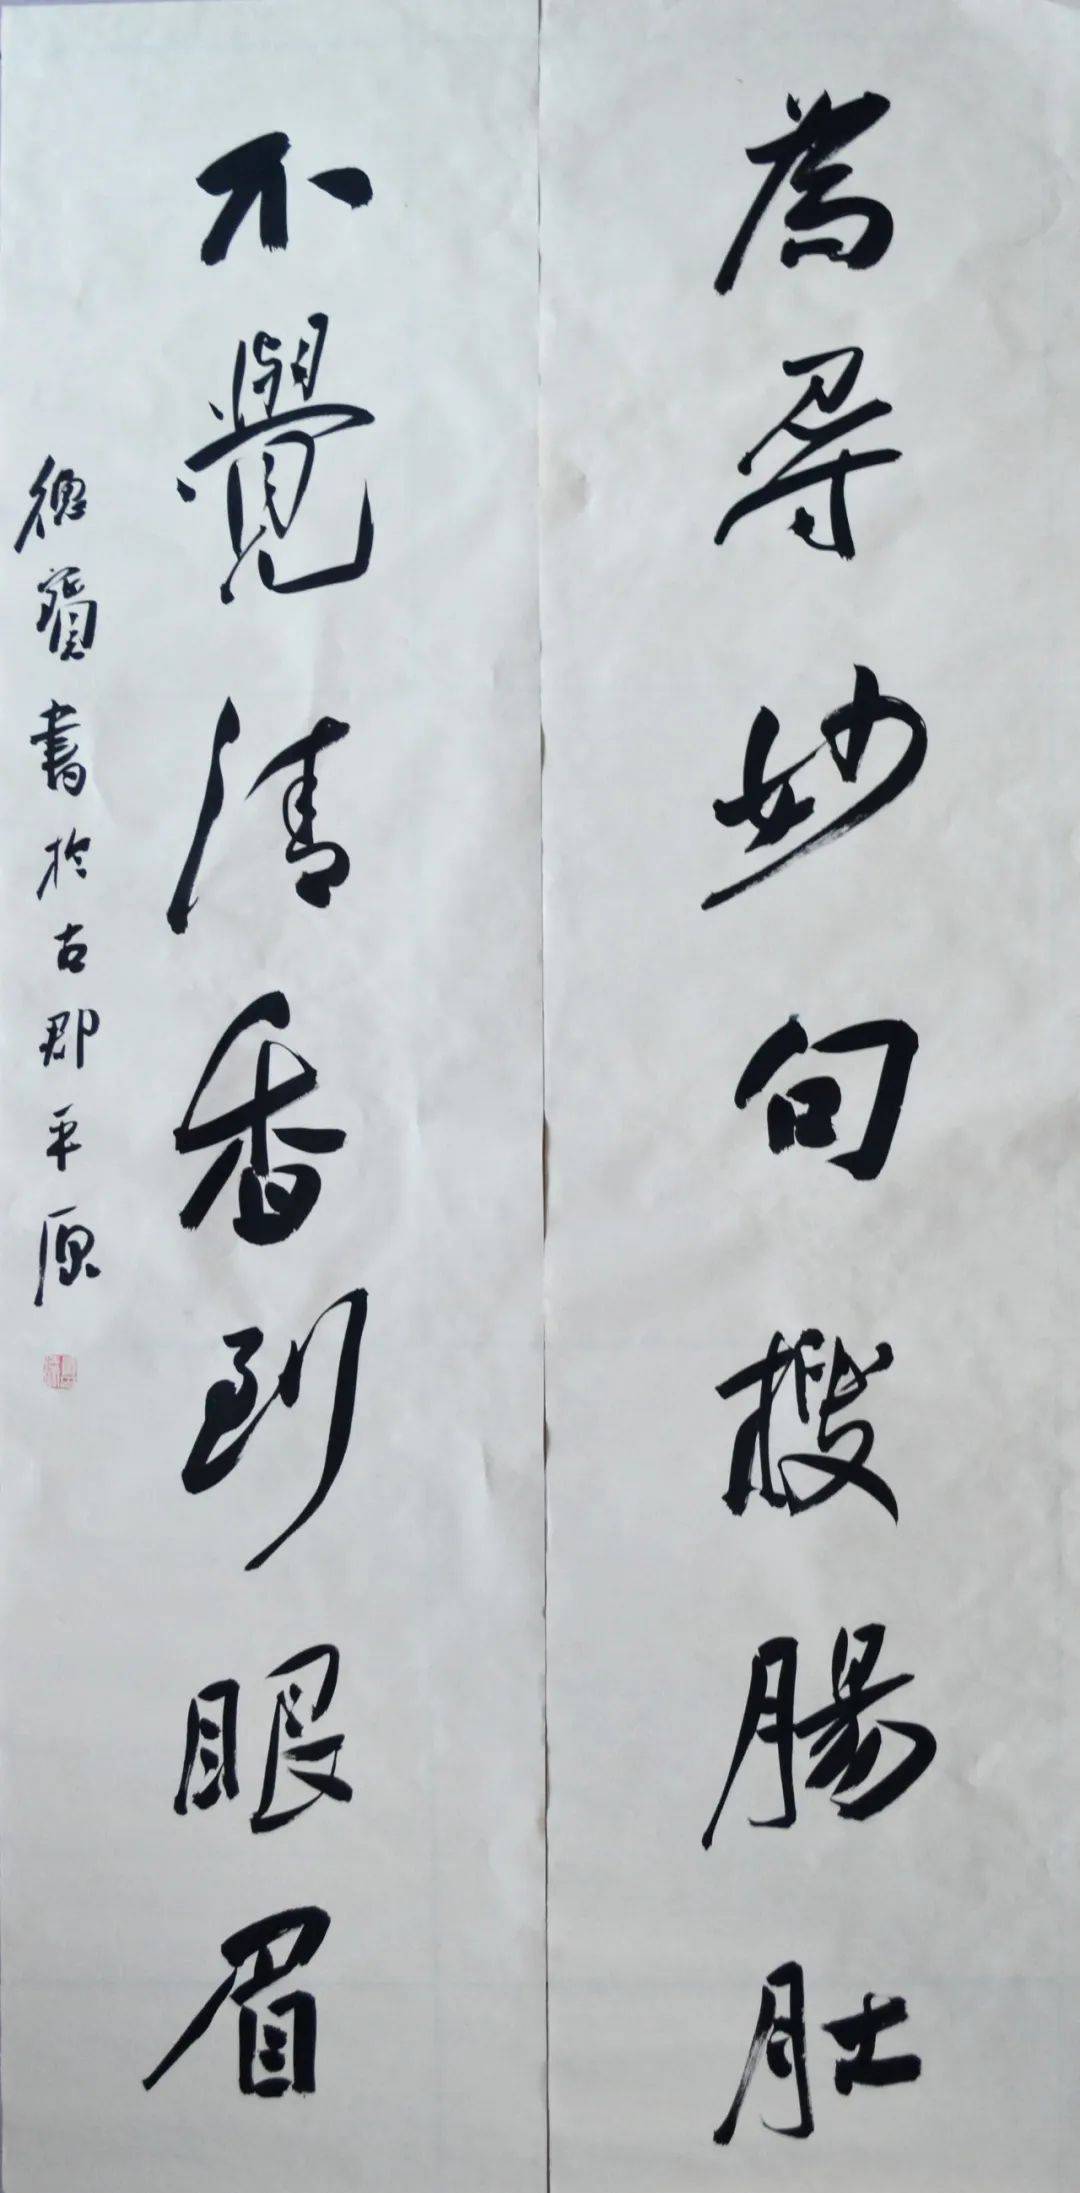 為尋妙句搜腸肚
不覺清香到眼眉
德寶書於古郡平原